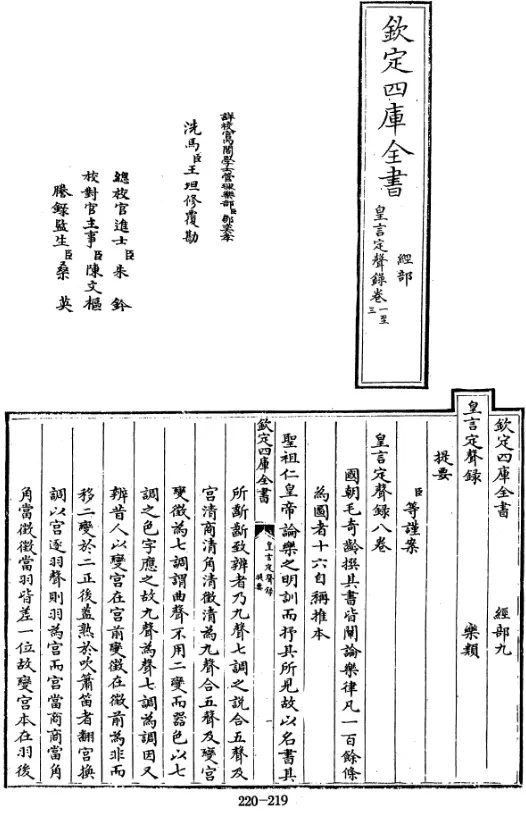 欽定四庫全書
經部
皇言定聲錄卷一至三
詳校官內閣學士管理樂部臣鄒奕孝
洗馬臣王坦修覆勘
總校官進士臣朱鈐
校對官主事臣陳文樞
謄錄監生臣桑英
欽定四庫全書 經部九
皇言定聲錄 樂類
提要
臣等謹案
皇言定聲錄八卷
國朝毛奇齡撰其書皆闡論樂律凡一百餘條
為圖者十六自稱推本
聖祖仁皇帝論樂之明訓而抒其所見故以名書其
欽定四庫全書 皇言定聲錄 提要
所斷斷致辨者乃九聲七調之說合五聲及
宮清商清角清徵清為九聲合五聲及變宮
變徵為七調謂曲聲不用二變而器色以七
調之色字應之故九聲為聲七調為調因又
辨昔人以變宮在宮前變徵在徵前為非而
移二變於二正後蓋熟於吹簫笛者翻宮換
調以宮逐羽聲則羽為宮而宮當商商當角
角當徵徵當羽皆差一位故變宮本在羽後
220-219